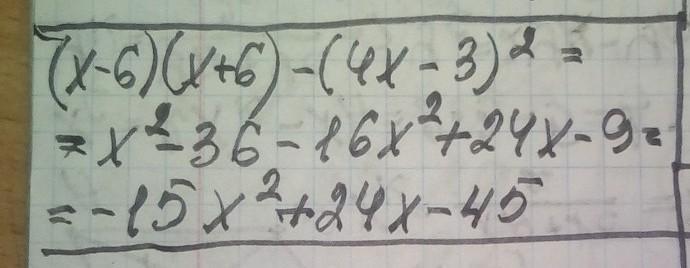 (x-6)(x+6)-(4x-3)² =
= x²-36-16x²+24x-9=
= -15x²+24x-45